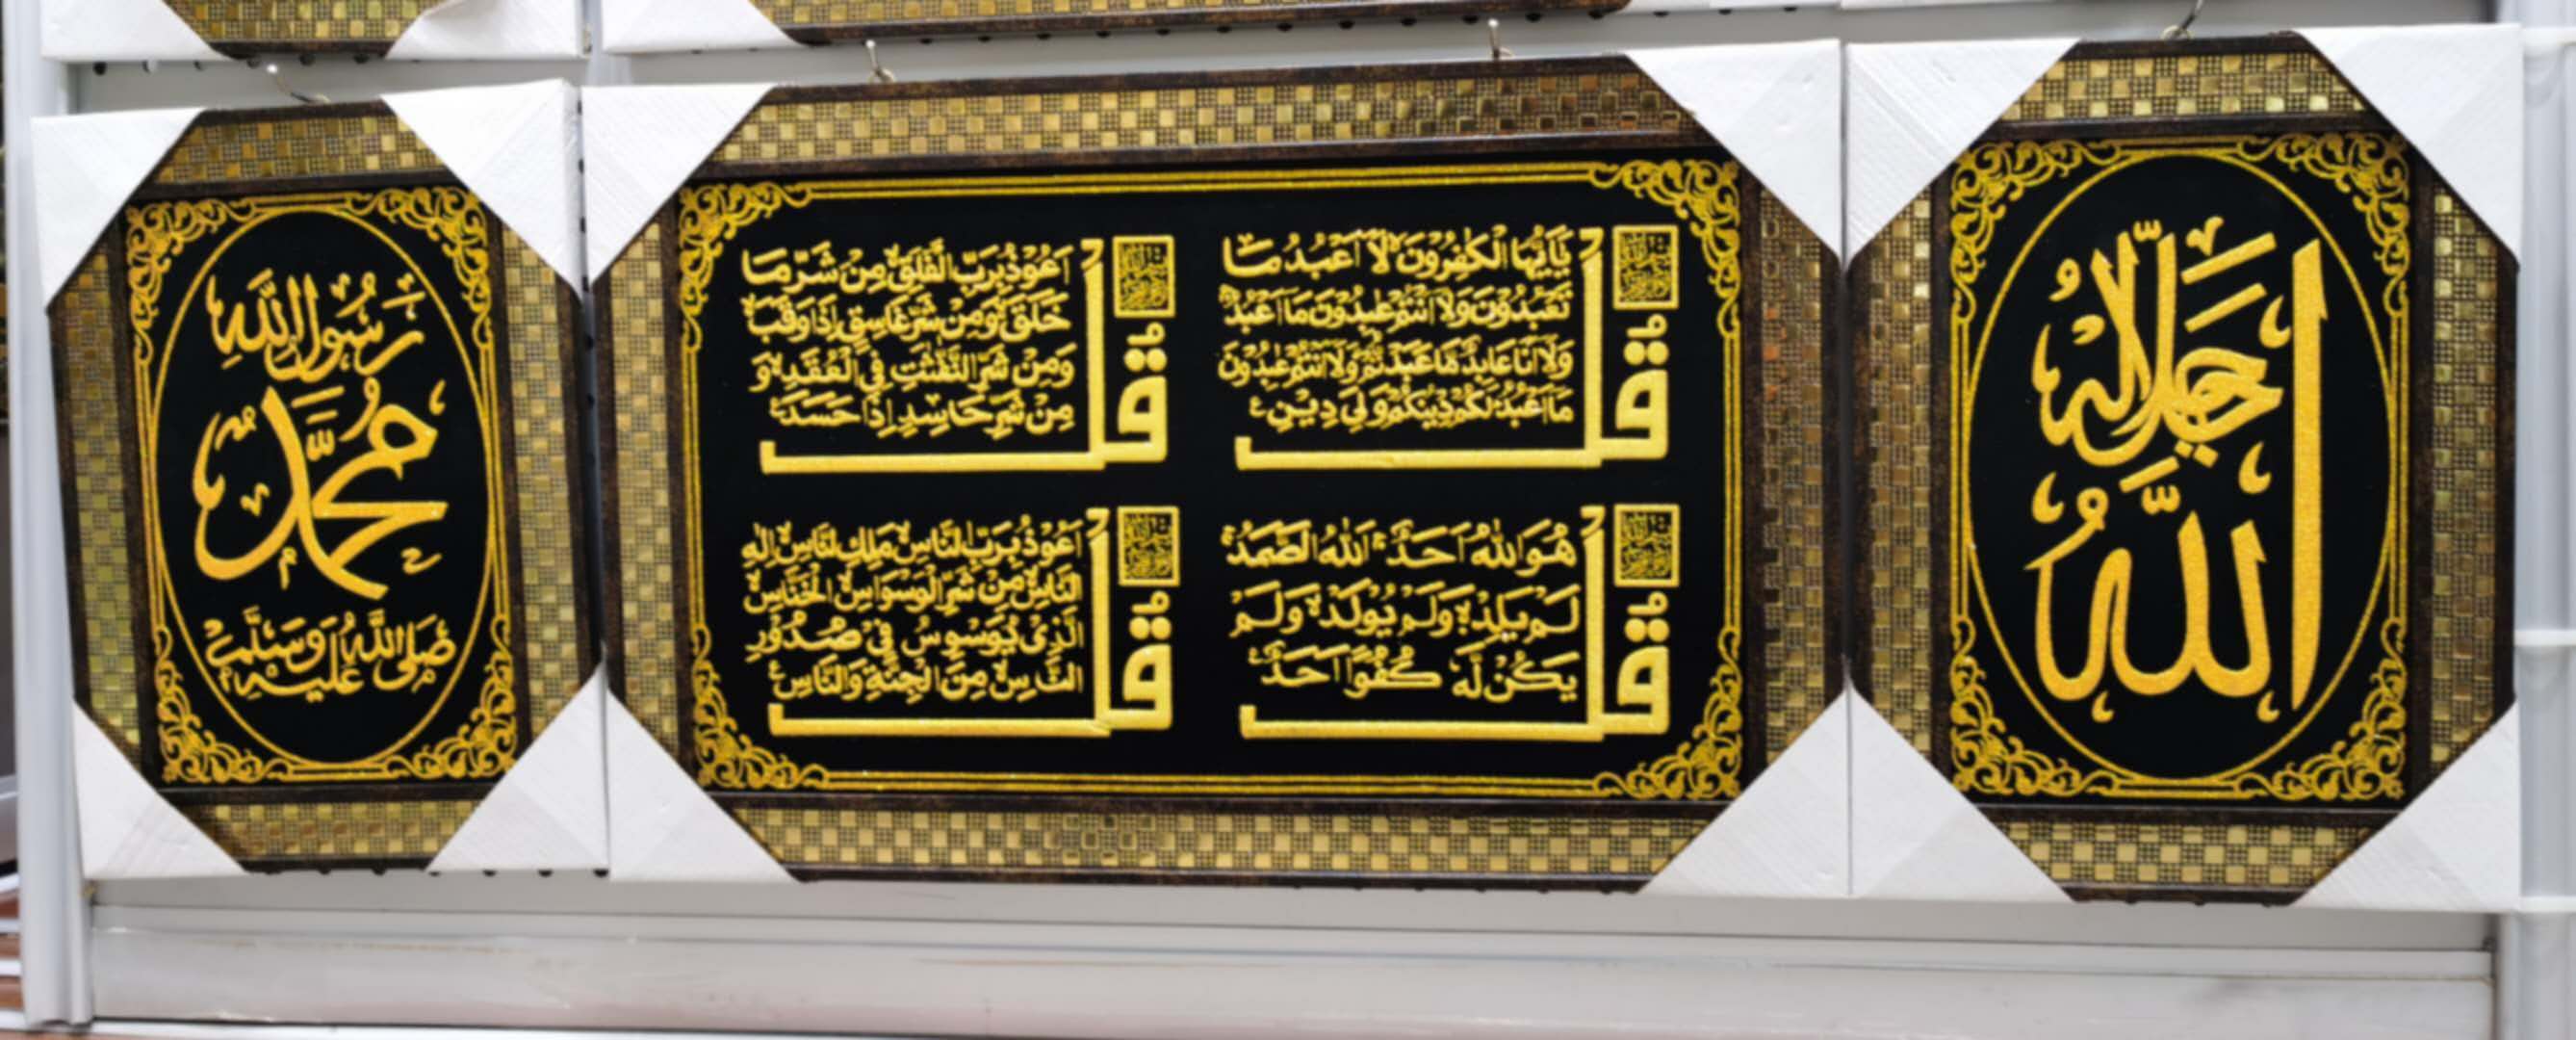 الله
جل جلاله
قل
يٰٓاَيُّهَا الْكٰفِرُوْنَ لَا اَعْبُدُ مَا
تَعْبُدُوْنَ وَلَا اَنْتُمْ عٰبِدُوْنَ مَا اَعْبُدُ
وَلَا اَنَا عَابِدٌ مَّا عَبَدْتُّمْ وَلَا اَنْتُمْ عٰبِدُوْنَ
مَا اَعْبُدُ لَكُمْ دِيْنُكُمْ وَلِيَ دِيْنِ
قل
اَعُوْذُ بِرَبِّ الْفَلَقِ مِنْ شَرِّ مَا
خَلَقَ وَمِنْ شَرِّ غَاسِقٍ اِذَا وَقَبَ
وَمِنْ شَرِّ النَّفّٰثٰتِ فِي الْعُقَدِ وَ
مِنْ شَرِّ حَاسِدٍ اِذَا حَسَدَ
قل
هُوَ اللّٰهُ اَحَدٌ اَللّٰهُ الصَّمَدُ
لَمْ يَلِدْ وَلَمْ يُوْلَدْ وَلَمْ
يَكُنْ لَّهٗ كُفُوًا اَحَدٌ
قل
اَعُوْذُ بِرَبِّ النَّاسِ مَلِكِ النَّاسِ اِلٰهِ
النَّاسِ مِنْ شَرِّ الْوَسْوَاسِ الْخَنَّاسِ
الَّذِيْ يُوَسْوِسُ فِيْ صُدُوْرِ
النَّاسِ مِنَ الْجِنَّةِ وَالنَّاسِ
رَسُولُ اللَّهِ
مُحَمَّدٌ
صَلَّى اللَّهُ عَلَيْهِ وَسَلَّمَ